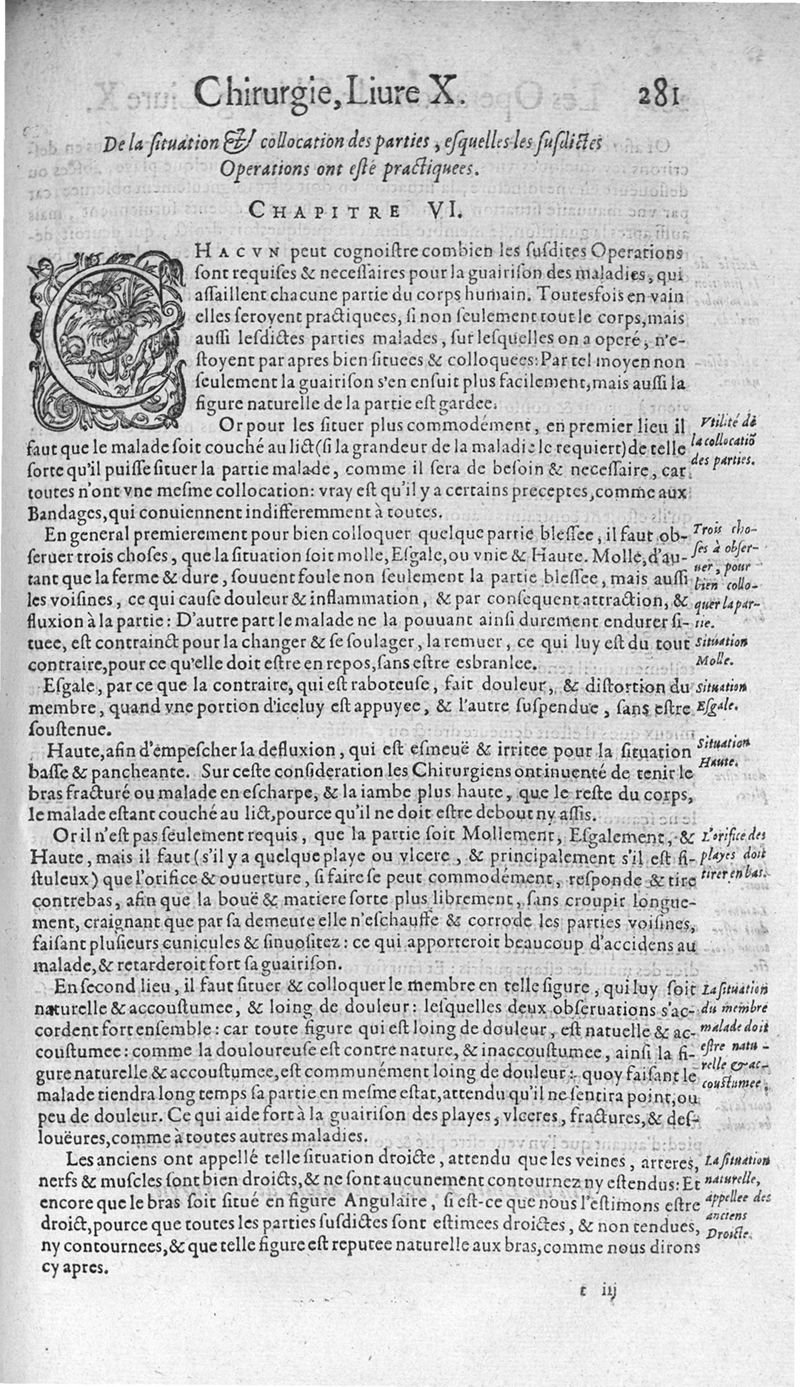 Chirurgie, Liure X. 281
De la ſituation & collocation des parties, eſquelles les ſuſdictes
Operations ont eſté practiquees.
CHAPITRE VI.
CHACVN peut cognoiſtre combien les ſuſdites Operations
ſont requiſes & neceſſaires pour la guairiſon des maladies, qui
aſſaillent chacune partie du corps humain. Toutesfois en vain
elles ſeroyent practiquees, ſi non ſeulement tout le corps, mais
auſſi leſdictes parties malades, ſur leſquelles on a operé, n'e-
ſtoyent par apres bien ſituees & colloquees: Par tel moyen non
ſeulement la guairiſon s'en enſuit plus facilement, mais auſſi la
figure naturelle de la partie eſt gardee.
Or pour les ſituer plus commodément, en premier lieu il
faut que le malade ſoit couché au lict (ſi la grandeur de la maladie le requiert) de telle
ſorte qu'il puiſſe ſituer la partie malade, comme il ſera de beſoin & neceſſaire, car
toutes n'ont vne meſme collocation: vray eſt qu'il y a certains preceptes, comme aux
Bandages, qui conuiennent indifferemment à toutes.
Vtilité de
la collocatiō
des parties.
En general premierement pour bien colloquer quelque partie bleſſee, il faut ob-
ſeruer trois choſes, que la ſituation ſoit molle, Eſgale, ou vnie & Haute. Molle, d'au-
tant que la ferme & dure, ſouuent foule non ſeulement la partie bleſſee, mais auſſi
les voiſines, ce qui cauſe douleur & inflammation, & par conſequent attraction, &
fluxion à la partie: D'autre part le malade ne la pouuant ainſi durement endurer ſi-
tuee, eſt contrainct pour la changer & ſe ſoulager, la remuer, ce qui luy eſt du tout
contraire, pour ce qu'elle doit eſtre en repos, ſans eſtre esbranlee.
Trois cho-
ſes à obſer-
uer, pour
bien collo-
quer la par-
tie.
Situation
Molle.
Eſgale, par ce que la contraire, qui eſt raboteuſe, fait douleur, & diſtortion du
membre, quand vne portion d'iceluy eſt appuyee, & l'autre ſuſpendue, ſans eſtre
ſouſtenue.
Situation
Eſgale.
Haute, afin d'empeſcher la defluxion, qui eſt eſmeuë & irritee pour la ſituation
baſſe & pancheante. Sur ceſte conſideration les Chirurgiens ont inuenté de tenir le
bras fracturé ou malade en eſcharpe, & la iambe plus haute, que le reſte du corps,
le malade eſtant couché au lict, pource qu'il ne doit eſtre debout ny aſſis.
Situation
Haute.
Or il n'eſt pas ſeulement requis, que la partie ſoit Mollement, Eſgalement, &
Haute, mais il faut (s'il y a quelque playe ou vlcere, & principalement s'il eſt fi-
ſtuleux) que l'orifice & ouuerture, ſi faire ſe peut commodément, reſponde & tire
contrebas, afin que la bouë & matiere ſorte plus librement, ſans croupir longue-
ment, craignant que par ſa demeure elle n'eſchauffe & corrode les parties voiſines,
faiſant pluſieurs cunicules & ſinuoſitez: ce qui apporteroit beaucoup d'accidens au
malade, & retarderoit fort ſa guairiſon.
L'orifice des
playes doit
tirer en bas.
En ſecond lieu, il faut ſituer & colloquer le membre en telle figure, qui luy ſoit
naturelle & accouſtumee, & loing de douleur: leſquelles deux obſeruations s'ac-
cordent fort enſemble: car toute figure qui eſt loing de douleur, eſt natuelle & ac-
couſtumee: comme la douloureuſe eſt contre nature, & inaccouſtumee, ainſi la fi-
gure naturelle & accouſtumee, eſt communément loing de douleur: quoy faiſant le
malade tiendra long temps ſa partie en meſme eſtat, attendu qu'il ne ſentira point, ou
peu de douleur. Ce qui aide fort à la guairiſon des playes, vlceres, fractures, & deſ-
louëures, comme à toutes autres maladies.
La ſituation
du membre
malade doit
eſtre natu-
relle & ac-
couſtumee.
Les anciens ont appellé telle ſituation droicte, attendu que les veines, arteres,
nerfs & muſcles ſont bien droicts, & ne ſont aucunement contournez ny eſtendus: Et
encore que le bras ſoit ſitué en figure Angulaire, ſi eſt-ce que nous l'eſtimons eſtre
droict, pource que toutes les parties ſuſdictes ſont eſtimees droictes, & non tendues,
ny contournees, & que telle figure eſt reputee naturelle aux bras, comme nous dirons
cy apres.
La ſituation
naturelle,
appellee des
anciens
Droicte.
t iij